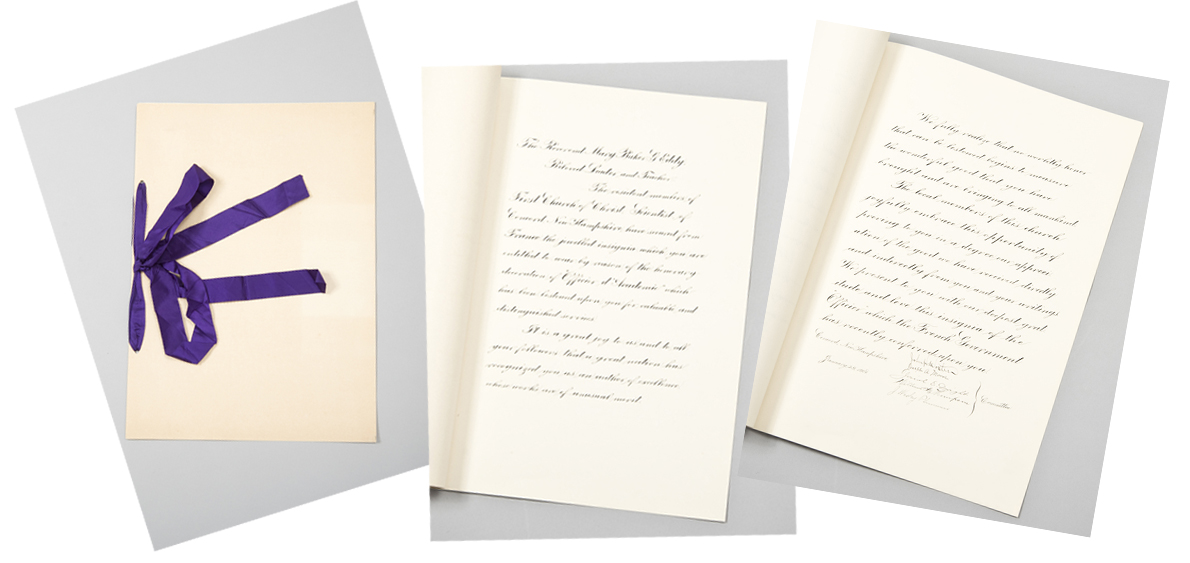 The Reverend Mary Baker G. Eddy,
Beloved Pastor and Teacher:
The resident members of
First Church of Christ Scientist of
Concord New Hampshire have secured from
France the jewelled insignia which you are
entitled to wear by reason of the honorary
decoration of "Officier d'Academie" which
has been bestowed upon you for valuable and
distinguished services.
It is a great joy to us and to all
your followers that a great nation has
recognized you as an author of excellence
whose works are of unusual merit.
We fully realize that no worldly honor
that can be bestowed begins to measure
the wonderful good that you have
brought and are bringing to all mankind.
The local members of this church
joyfully embrace this opportunity of
proving to you in a degree our appreci-
ation of the good we have received directly
and indirectly from you and your writings.
We present to you with our deepest grat-
itude and love this insignia of the
Officier which the French Government
has recently conferred upon you.
Concord, New Hampshire
January
Committee